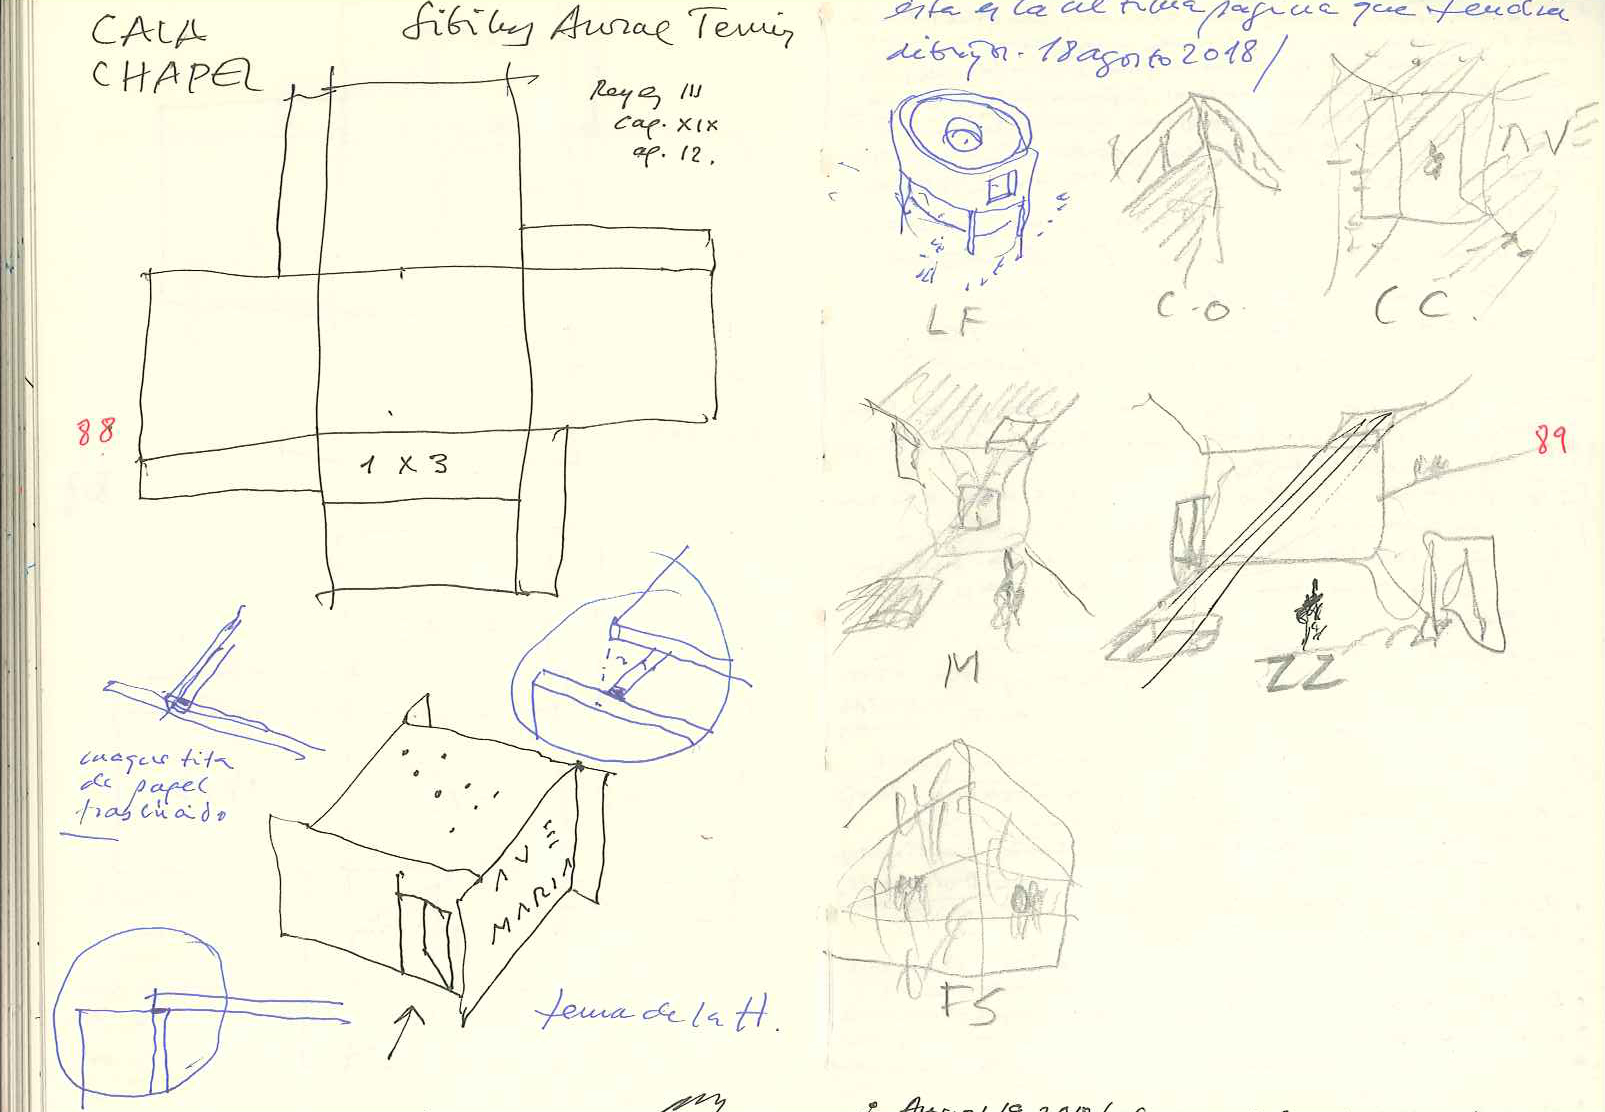 CALA
CHAPEL
Sibilus Aurae Tenuis
Reyes III
cap. XIX
ap. 12.
88
1 X 3
maquetita
de papel
AVE
MARIA
tema de la H.
esta es la ultima pagina que tendra
dibujos. 18 agosto 2018/
AVE
LF
C.O.
CC.
89
M
ZZ
FS